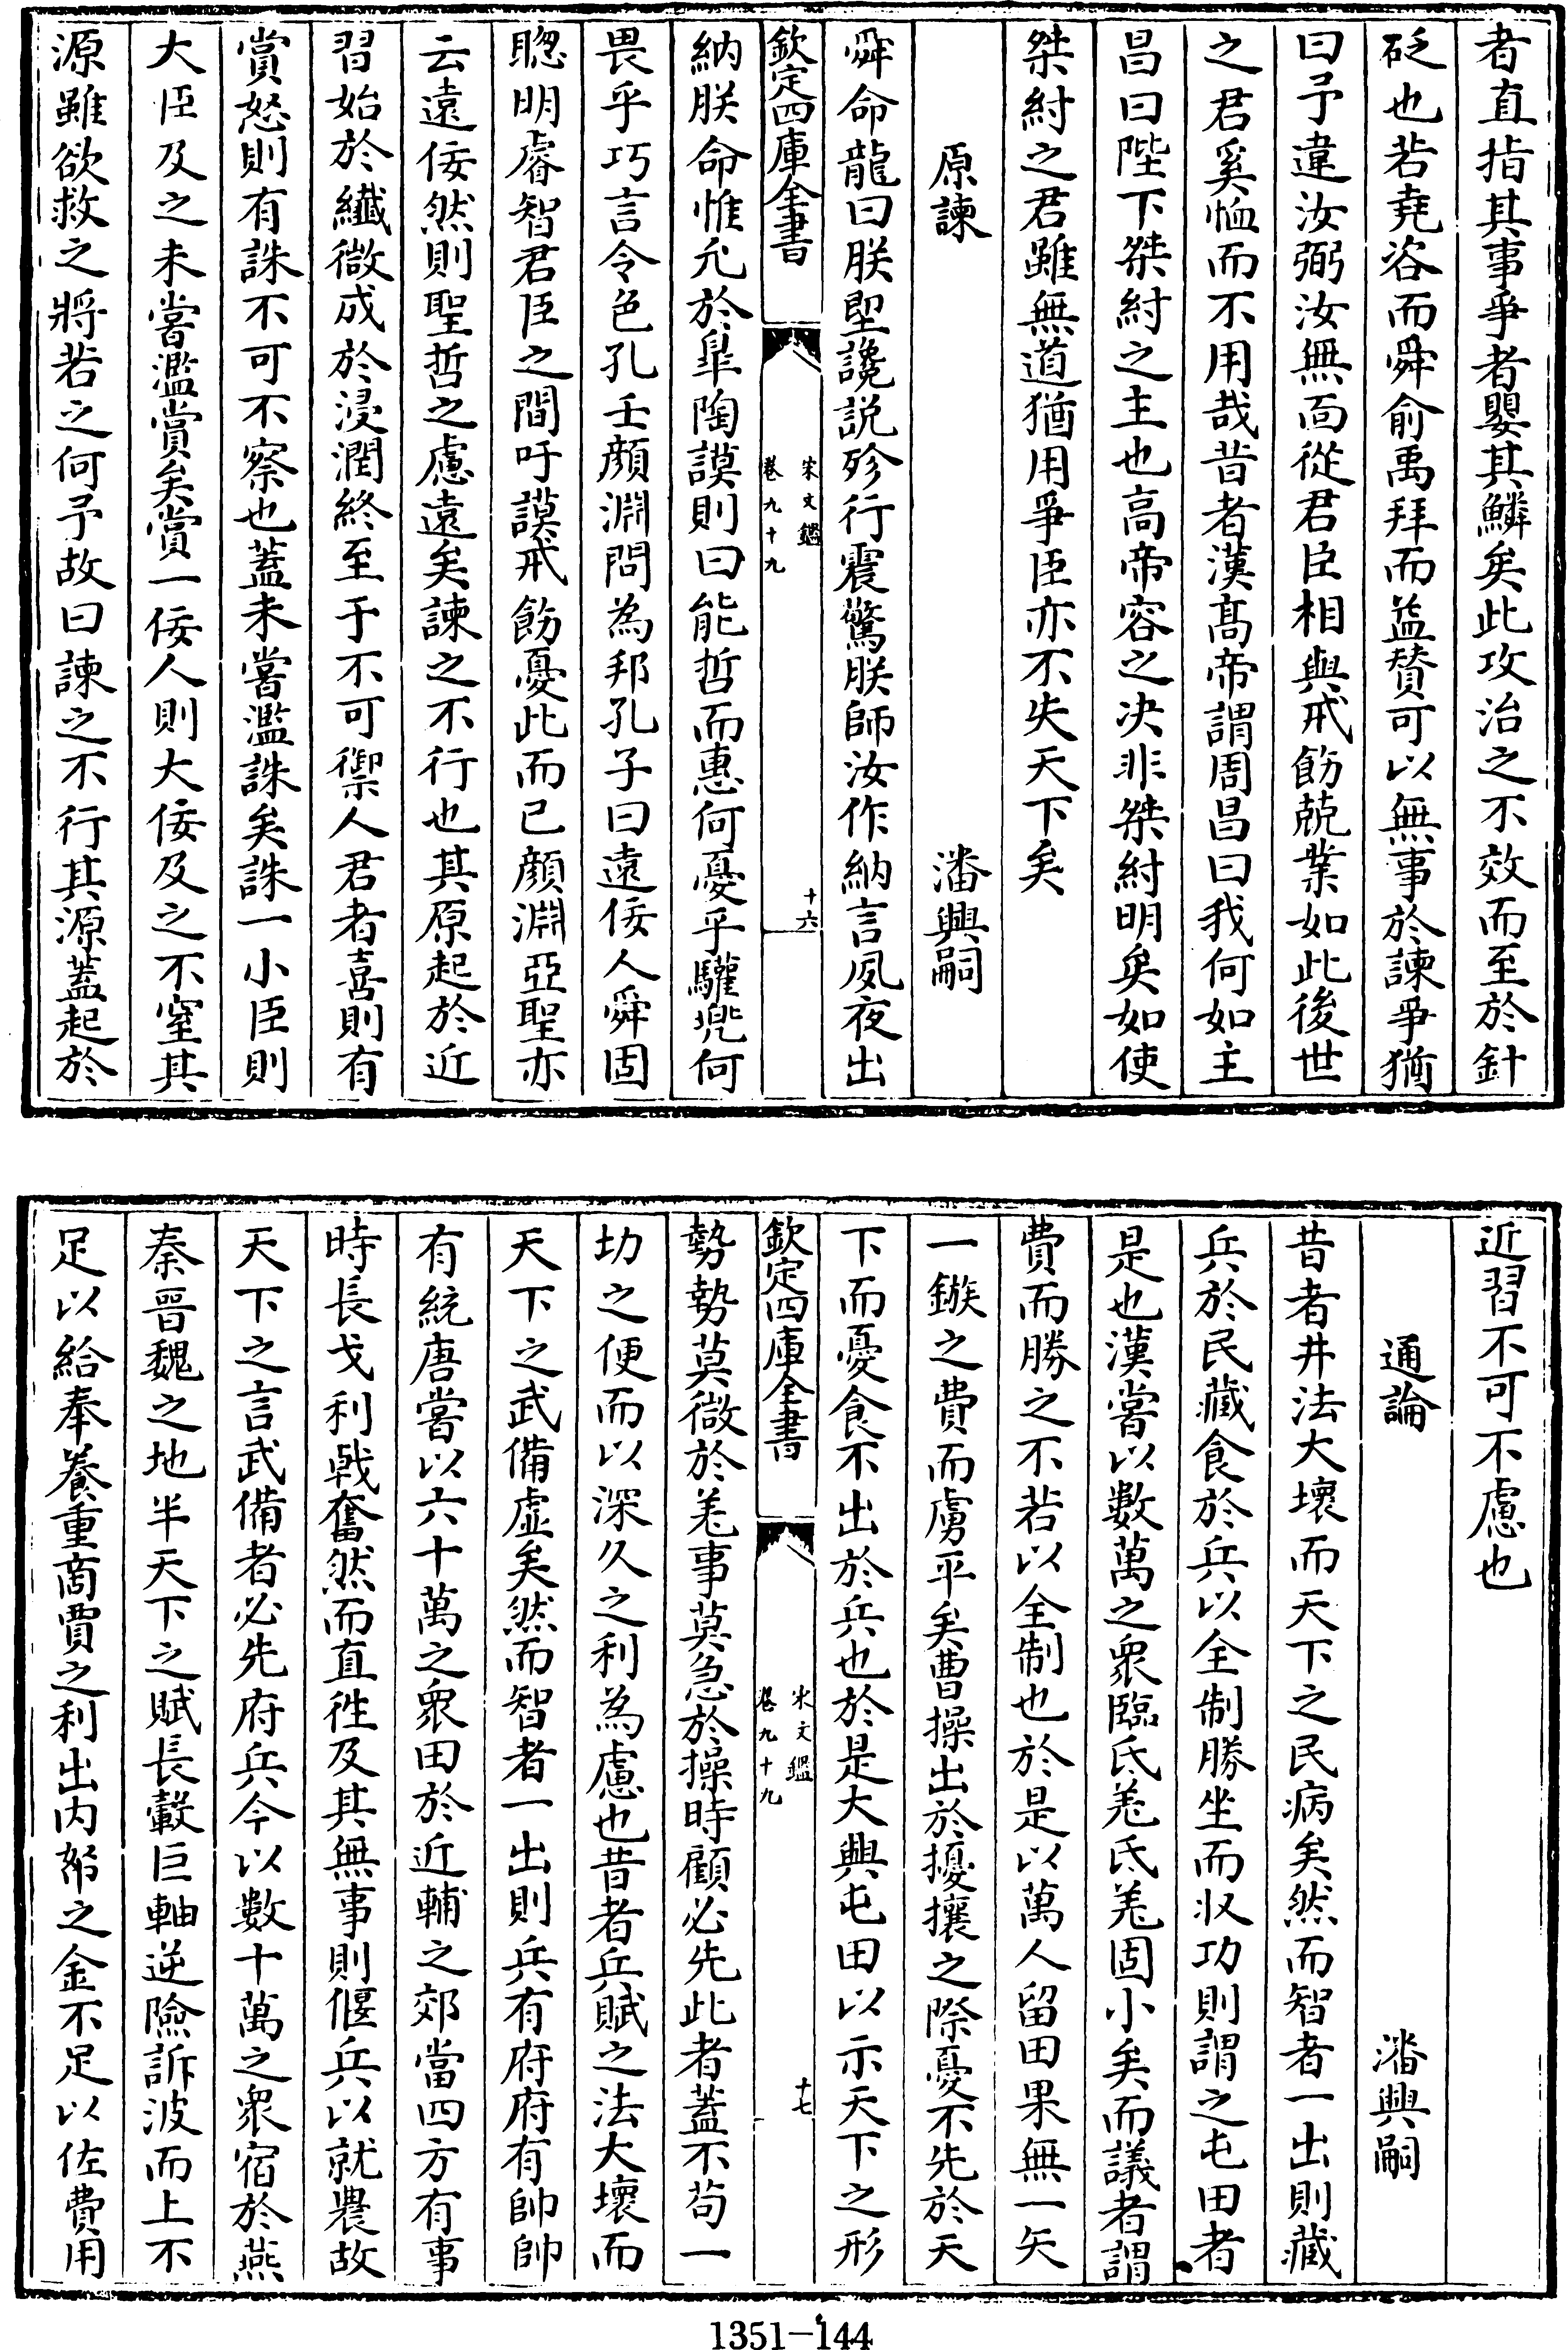 者直指其事爭者嬰其鱗矣此攻治之不效而至於針
砭也若堯咨而舜俞禹拜而益賛可以無事於諫爭猶
曰予違汝弼汝無面從君臣相與戒飭兢業如此後世
之君奚恤而不用哉昔者漢髙帝謂周昌曰我何如主
昌曰陛下桀紂之主也高帝容之决非桀紂明矣如使
桀紂之君雖無道猶用爭臣亦不失天下矣
原諫 潘興嗣
舜命龍曰朕堲讒説殄行震驚朕師汝作納言夙夜出
欽定四庫全書 宋文鑑 卷九十九 十六
納朕命惟允於臯陶謨則曰能哲而惠何憂乎驩兜何
畏乎巧言令色孔壬顔淵問為邦孔子曰遠佞人舜固
聰明睿智君臣之間吁謨戒飭憂此而已顔淵亞聖亦
云遠佞然則聖哲之慮遠矣諫之不行也其原起於近
習始於纎微成於浸潤終至于不可禦人君者喜則有
賞怒則有誅不可不察也蓋未嘗濫誅矣誅一小臣則
大臣及之未嘗濫賞矣賞一佞人則大佞及之不窒其
源雖欲救之將若之何予故曰諫之不行其源蓋起於
近習不可不慮也
通論 潘興嗣
昔者井法大壞而天下之民病矣然而智者一出則藏
兵於民藏食於兵以全制勝坐而收功則謂之屯田者
是也漢嘗以數萬之衆臨氐羌氐羌固小矣而議者謂
費而勝之不若以全制也於是以萬人留田果無一矢
一鏃之費而虜平矣曹操出於擾攘之際憂不先於天
下而憂食不出於兵也於是大興屯田以示天下之形
欽定四庫全書 宋文鑑 卷九十九 十七
勢勢莫微於羌事莫急於操時顧必先此者蓋不苟一
功之便而以深久之利為慮也昔者兵賦之法大壞而
天下之武備虛矣然而智者一出則兵有府府有帥帥
有統唐嘗以六十萬之衆田於近輔之郊當四方有事
時長戈利戟奮然而直徃及其無事則偃兵以就農故
天下之言武備者必先府兵今以數十萬之衆宿於燕
秦晉魏之地半天下之賦長轂巨軸逆險訴波而上不
足以給奉養重商賈之利出内帑之金不足以佐費用
1351-144